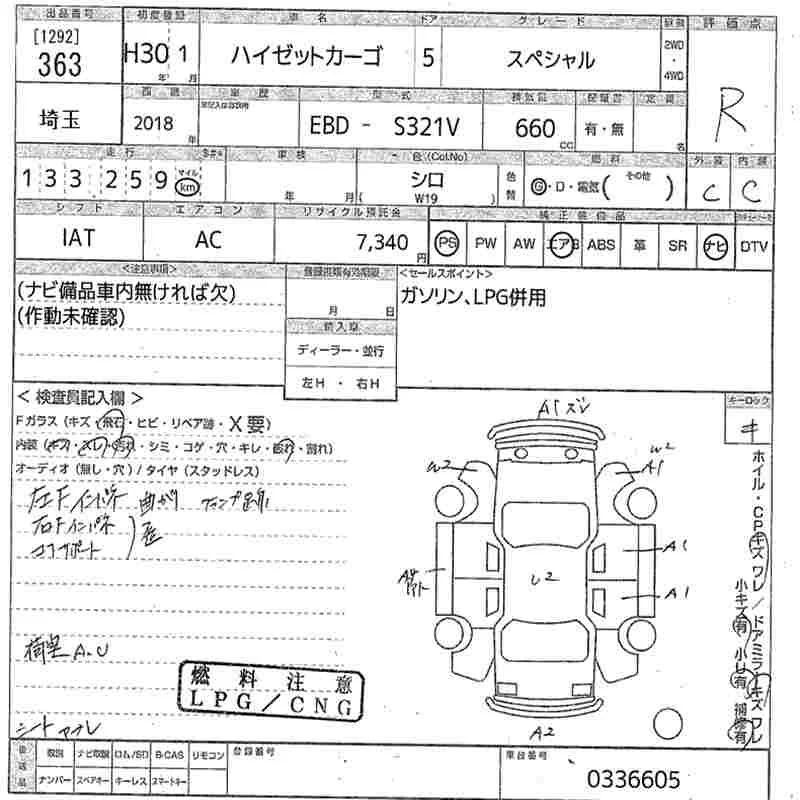 出品番号 初度登録 車名 ドア グレード 駆動 評価点
[1292]
363 H30 1 ハイゼットカーゴ 5 スペシャル 2WD・4WD R
年 月
西暦 車歴 型式 排気量 記録簿 定員
埼玉 2018年 EBD - S321V 660cc 有・無 名
走行 車検 色(Col.No) 燃料 外装 内装
133,259 マイル km 年 月 シロ 色替 G・D・電気( その他 ) C C
(W19)
シフト エアコン リサイクル預託金 純正装備品
IAT AC 7,340円 PS PW AW エアB ABS 革 SR ナビ DTV
<注意事項> 登録書類有効期限 <セールスポイント>
(ナビ備品車内無ければ欠) ガソリン、LPG併用
(作動未確認) 月 日
輸入車
ディーラー・並行
左H ・ 右H
<検査員記入欄> キーロック
Fガラス(キズ・飛石・ヒビ・リペア跡・X要) キ
内装(キズ・スレ・汚れ・シミ・コゲ・穴・キレ・破れ・割れ)
オーディオ(無し・穴)/タイヤ(スタッドレス)
左Fインパネ 曲がり
右Fインパネ
コアサポート 歪
荷室 A.U
燃料注意
LPG/CNG
A1 ズレ
W2
W2
A1
A1
A1
U2
A2
ホイル・CPキズワレ/ドアミラーキズワレ
小キズ有 小U有 補修有
後送品 取説 ナビ取説 ロム/SD B-CAS リモコン 登録番号 車台番号
ナンバー スペアキー キーレス スマートキー 0336605